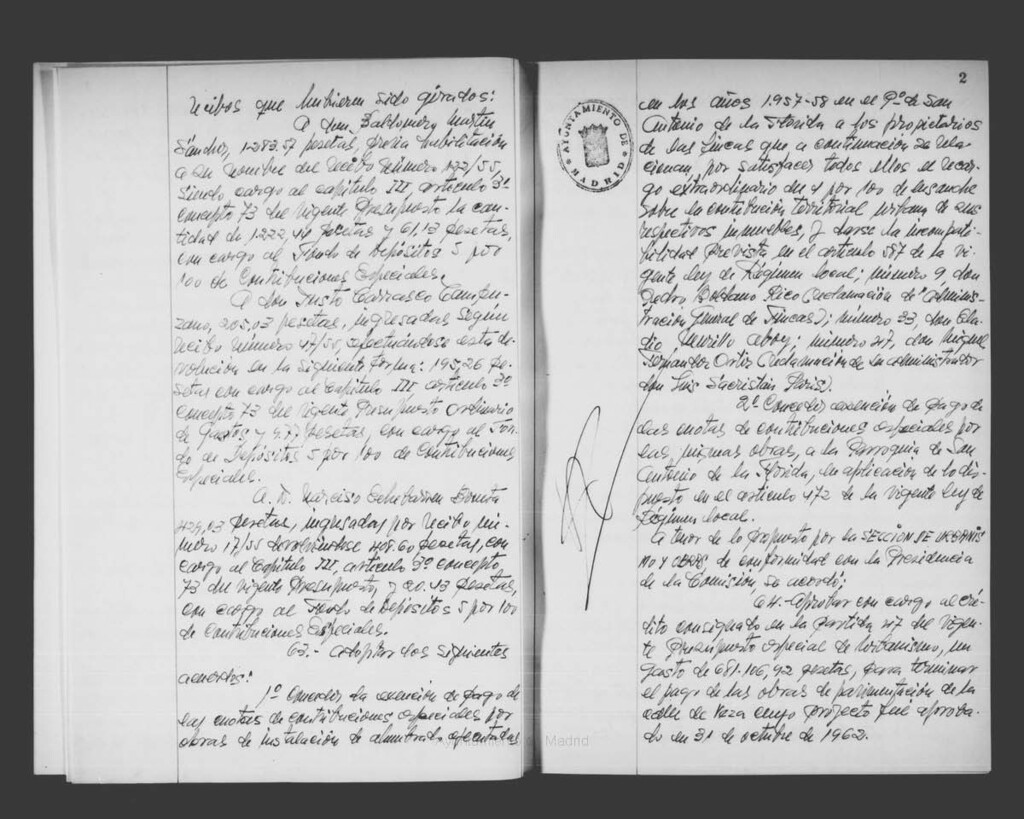 recibos que hubieren sido girados:
A don Baldomero Martín
Sánchez, 1.283.57 pesetas, previa habilitación
a su nombre del recibo número 172/55,
siendo cargo al capítulo III, artículo 3º
concepto 73 del vigente Presupuesto la can-
tidad de 1.222,44 pesetas y 61,13 pesetas,
con cargo al Fondo de Depósitos 5 por
100 de Contribuciones Especiales.
A don Justo Carrasco
205,03 pesetas, ingresadas según
recibo número 47/50, efectuándose esta de-
volución en la siguiente forma: 195,26 pe-
setas con cargo al capítulo III, artículo 3º
concepto 73 del vigente Presupuesto ordinario
de Gastos y 9.77 pesetas, con cargo al Fon-
do de Depósitos 5 por 100 de Contribuciones
Especiales.
A D. Narciso
429,03 pesetas, ingresadas por recibo nú-
mero 17/55 devolviéndose 408.60 pesetas, con
cargo al Capítulo III, artículo 3º concepto
73 del vigente Presupuesto, y 20.43 pesetas,
con cargo al Fondo de Depósitos 5 por 100
de Contribuciones Especiales.
63.- Adoptar los siguientes
acuerdos:
1º Conceder la exención de pago de
las cuotas de contribuciones especiales por
obras de instalación de alumbrado ejecutadas
2
AYUNTAMIENTO DE MADRID
en los años 1.957-58 en el Pº de San
Antonio de la Florida a los propietarios
de las fincas que a continuación se rela-
cionan, por satisfacer todos ellos el recar-
go extraordinario del 4 por 100 de Ensanche
sobre la contribución territorial urbana de sus
respectivos inmuebles, y darse la incompati-
bilidad prevista en el artículo 587 de la vi-
gente Ley de Régimen Local; número 9, don
Pedro Rico (reclamación de Adminis-
tración General de Fincas); número 33, don Ela-
dio Murillo; número 47, don Miguel
Fernández Ortiz (reclamación del administrador
don Luis Sacristán París).
2º Conceder exención de pago de
las cuotas de contribuciones especiales por
las mismas obras, a la Parroquia de San
Antonio de la Florida, en aplicación de lo dis-
puesto en el artículo 472 de la vigente Ley de
Régimen Local.
A tenor de lo propuesto por la SECCIÓN DE URBANIS
MO Y OBRAS, de conformidad con la Presidencia
de la Comisión, se acordó:
64.- Aprobar con cargo al cré-
dito consignado en la partida 47 del vigen-
te Presupuesto especial de Urbanismo, un
gasto de 681.106,92 pesetas, para terminar
el pago de las obras de pavimentación de la
calle de cuyo proyecto fué aproba-
do en 31 de octubre de 1962.
Ayuntamiento de Madrid